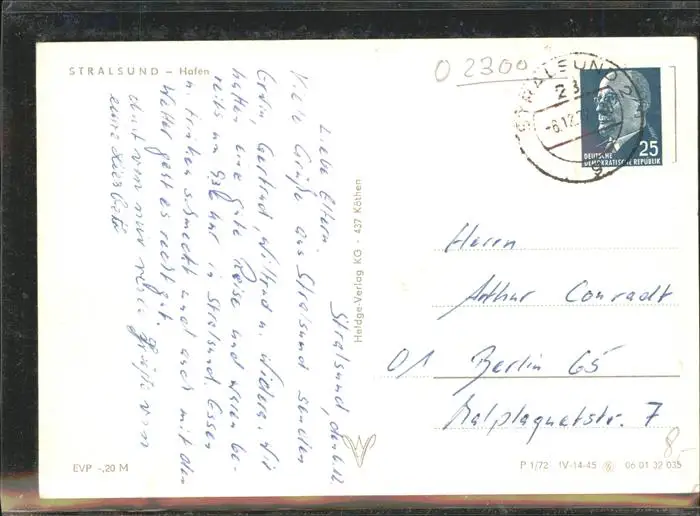 STRALSUND – Hafen
O 2300
STRALSUND
23
-6.12.
DEUTSCHE
DEMOKRATISCHE REPUBLIK
25
Stralsund, den 6.12.
Liebe Eltern.
Viele Grüße aus Stralsund senden
Gertrud, Wilfried u. Wir
hatten eine gute Reise und waren be-
reits um 9 Uhr in Stralsund. Essen
u. Trinken schmeckt und auch mit dem
Wetter geht es recht gut.
von
eure
Heldge-Verlag KG · 437 Köthen
Herrn
Arthur Conradt
01 Berlin 65
Malplaquetstr. 7
8,-
EVP -,20 M
P 1/72 IV-14-45 06 01 32 035